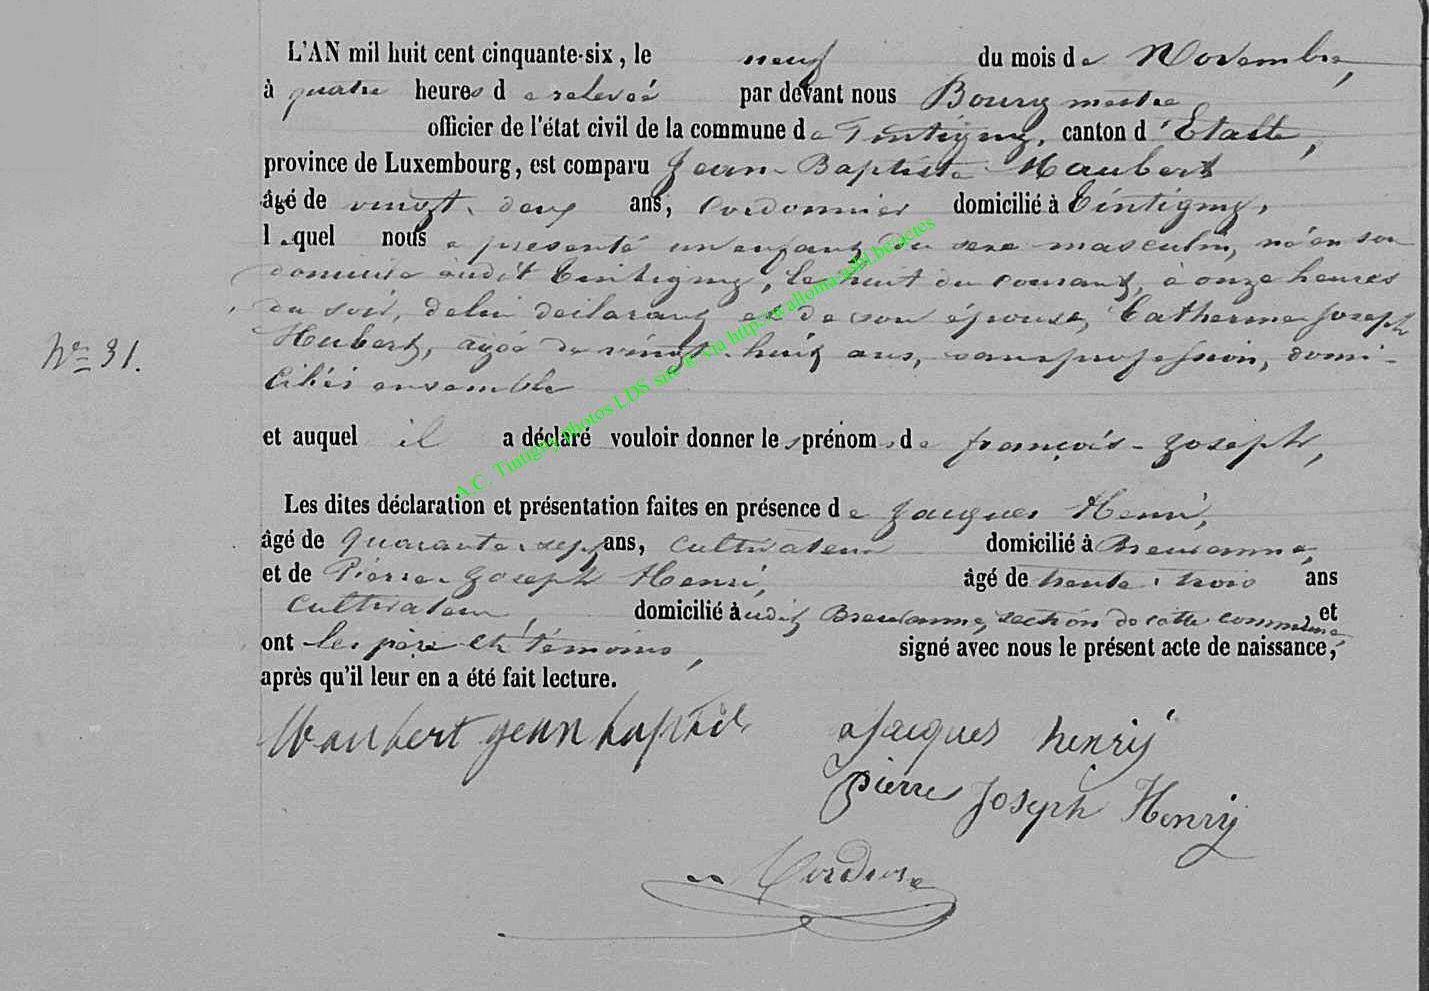 L'AN mil huit cent cinquante-six, le neuf du mois de Novembre,
à quatre heures de relevée par devant nous Bourgmestre
officier de l'état civil de la commune de Tintigny, canton d'Etalle,
province de Luxembourg, est comparu Jean-Baptiste Haubert
âgé de vingt-deux ans, cordonnier domicilié à Tintigny,
lequel nous a presenté un enfant du sexe masculin, né en son
domicile audit Tintigny, le huit du courant, à onze heures
du soir, de lui déclarant et de son épouse, Catherine Joseph
N° 31.
Hubert, agée de vingt-huit ans, sans profession, domi-
ciliés ensemble
et auquel il a déclaré vouloir donner les prénoms de françois-Joseph,
Les dites déclaration et présentation faites en présence de Jacques Henri,
âgé de Quarante-sept ans, Cultivateur domicilié à Breuvanne,
et de Pierre-Joseph Henri, âgé de trente-trois ans
Cultivateur, domicilié audit Breuvanne, section de cette commune, et
ont les père et témoins, signé avec nous le présent acte de naissance,
après qu'il leur en a été fait lecture.
Haubert jean baptist
Jacques henry
pierre Joseph Henry
A.C. Tintigny photos LDS site @ via http://walloma-asbl.be/actes